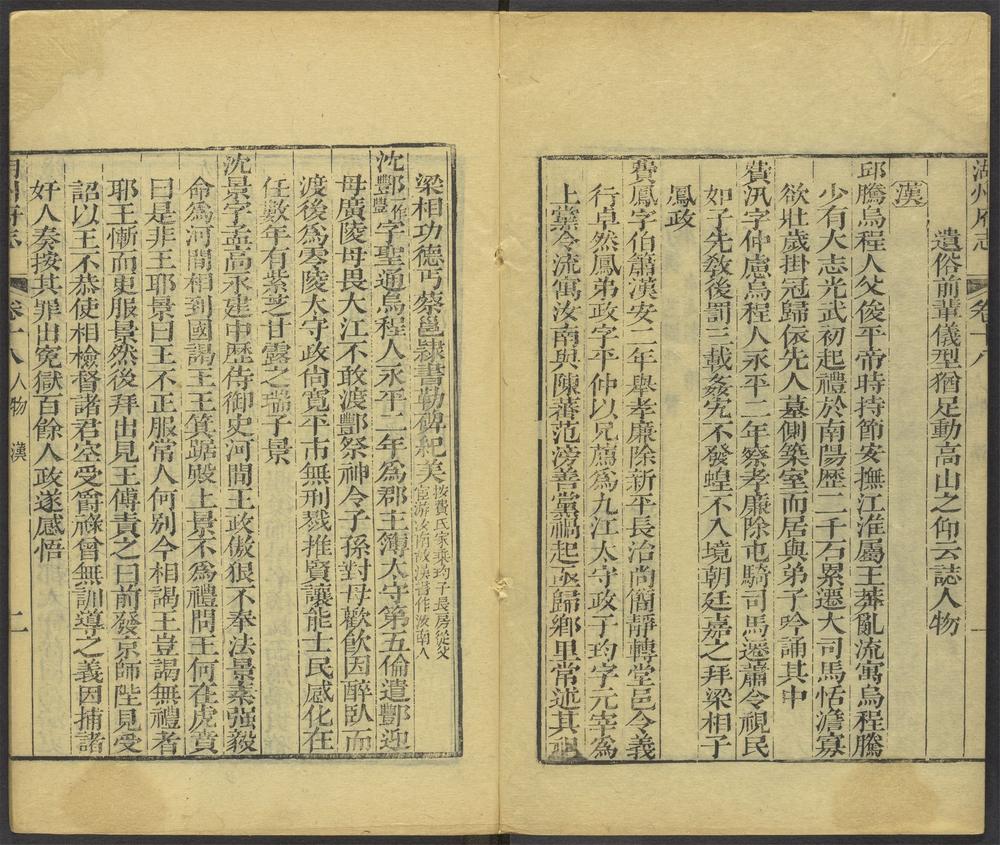 湖州府志 卷十八 一
遺俗前輩儀型猶足動高山之仰云誌人物
漢
邱騰烏程人父俊平帝時持節安撫江淮屬王莽亂流寓烏程騰
少有大志光武初起禮於南陽歷二千石累遷大司馬恬澹寡
欲壯歲掛冠歸依先人墓側築室而居與弟子吟誦其中
費汎字仲慮烏程人永平二年察孝廉除屯騎司馬遷蕭令視民
如子先教後罰三載姦宄不發蝗不入境朝廷嘉之拜梁相子
鳳政
費鳳字伯蕭漢安二年舉孝廉除新平長治尚簡靜轉堂邑令義
行卓然鳳弟政字平仲以兄薦為九江太守政子玓字元宰為
上黨令流寓汝南與陳蕃范滂善黨禍起亟歸鄉里常述其祖
梁相功德丐蔡邕隸書勒碑紀美按費氏家乘玓子長房從父
宦游汝南故漢書作汝南人
沈酆一作豐字聖通烏程人永平二年為郡主簿太守第五倫遣酆迎
母廣陵母畏大江不敢渡酆祭神令子孫對母歡飲因醉臥而
渡後為零陵太守政尚寬平市無刑戮推賢讓能士民感化在
任數年有紫芝甘露之瑞子景
沈景字孟高永建中歷侍御史河間王政傲狠不奉法景素强毅
命為河間相到國謁王王箕踞殿上景不為禮問王何在虎賁
曰是非王耶景曰王不正服常人何别今相謁王豈謁無禮者
耶王慚而更服景然後拜出見王傅責之曰前發京師陛見受
詔以王不恭使相檢督諸君空受爵祿曾無訓導之義因捕諸
奸人奏按其罪出寃獄百餘人政遂感悟
湖州府志 卷十八 人物 漢 二